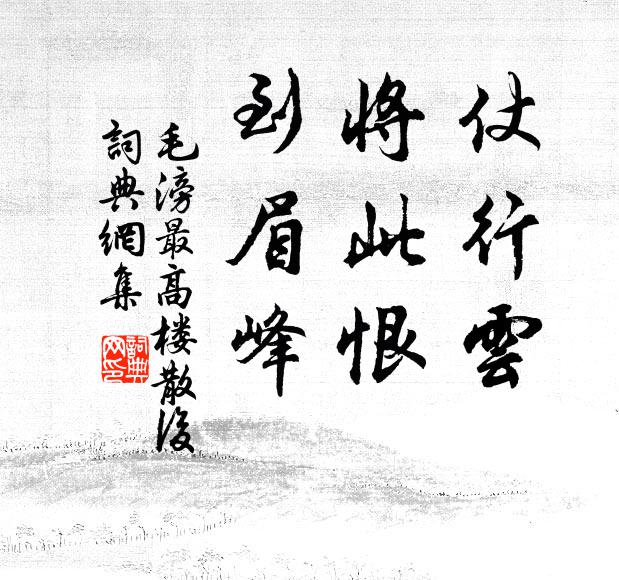 仗行雲
將此恨
到眉峰
毛滂最高楼散後
詞典網集
詞典网印